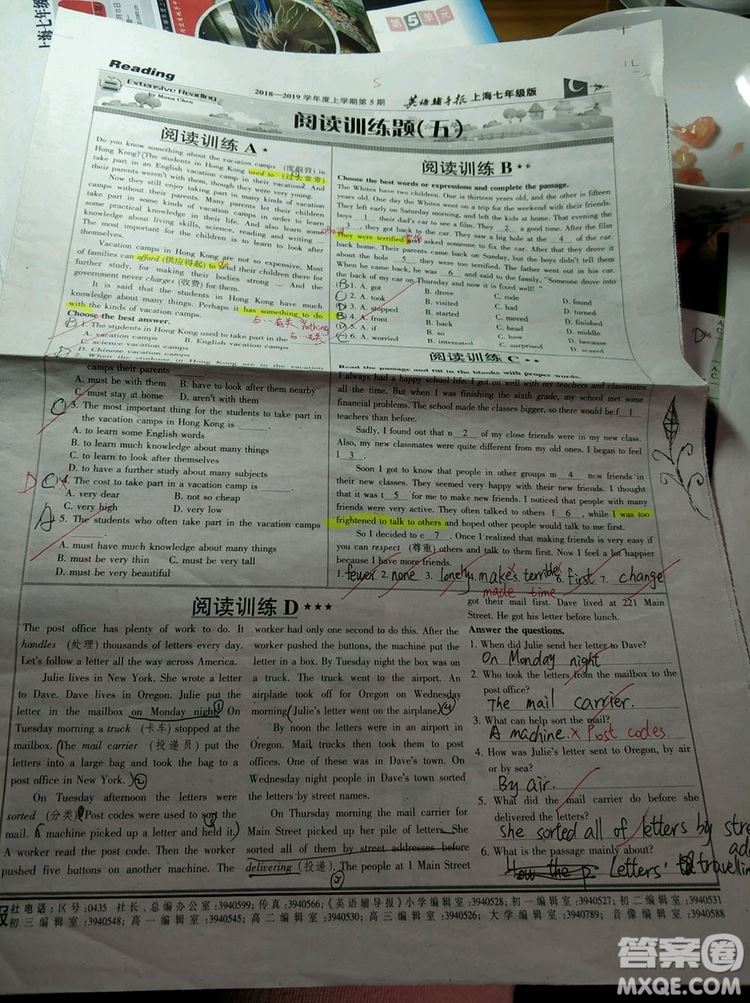 第5单元
Reading
Extensive Reading
by Mona Chen
2018—2019 学年度上学期第 5 期
英语辅导报 上海七年级版
阅读训练题(五)
阅读训练 A ★
Do you know something about the vacation camps (度假营) in
Hong Kong? The students in Hong Kong used to (过去常常)
take part in an English vacation camp in their vacations. And
their parents weren't with them, though they were very young.
Now they still enjoy taking part in many kinds of vacation
camps without their parents. Many parents let their children
take part in some kinds of vacation camps in order to learn
some practical knowledge in their life. And also learn some
knowledge about life skills, science, reading, writing ...
The most important for the children is to learn to look after
themselves.
Vacation camps in Hong Kong are not so expensive. Most
of families can afford (供应得起) to send their children there for
further study, for making their bodies strong ... And the
government never charges (收费) for them.
It is said that the students in Hong Kong have much
knowledge about many things. Perhaps it has something to do
with the kinds of vacation camps.
Choose the best answer.
1. The students in Hong Kong used to take part in the
A. vacation camps B. English vacation camps
C. science vacation camps
D. Chinese vacation camps
2. When
students in Hong Kong are
camps their parents
A. must be with them B. have to look after them nearby
C. must stay at home D. aren't with them
C 3. The most important thing for the students to take part in
the vacation camps in Hong Kong is ____.
A. to learn some English words
B. to learn much knowledge about many things
C. to learn to look after themselves
D. to have a further study about many subjects
D C 4. The cost to take part in a vacation camp is ____.
A. very dear B. not so cheap
C. very high D. very low
A 5. The students who often take part in the vacation camps
____.
A. must have much knowledge about many things
B. must be very thin C. must be very tall
D. must be very beautiful
阅读训练 B ★★
Choose the best words or expressions and complete the passage.
The Whites have two children. One is thirteen years old, and the other is fifteen
years old. One day the Whites went on a trip for the weekend with their friends.
They left early on Saturday morning, and left the kids at home. That evening the
boys 1 their dad's car to see a film. They 2 a good time. After the film
3 they got back to the car. They saw a big hole at the 4 of the car.
They were terrified and asked someone to fix the car. After that they drove it
back home. Their parents came back on Sunday, but the boys didn't tell them
about the hole 5 they were too terrified. The father went out in his car.
When he came back, he was 6 and said to the family, "Someone drove into
the back of my car on Thursday and now it is fixed well!"
1. A. got B. drove C. rode D. found
2. A. took B. visited C. had D. turned
3. A. stopped B. started C. moved D. finished
4. A. front B. head C. back D. middle
5. A. if B. so C. how D. because
6. A. worried B. interested C. surprised D. scared
阅读训练 C ★★
Read the passage and fill in the blanks with proper words.
I always had a happy school life. I got on well with my teachers and classmates
all the time. But when I was finishing the sixth grade, my school met some
financial problems. The school made the classes bigger, so there would be f 1
teachers than before.
Sadly, I found out that n 2 of my close friends were in my new class.
Also, my new classmates were quite different from my old ones. I began to feel
l 3 .
Soon I got to know that people in other groups m 4 new friends in
their new classes. They seemed very happy with their new friends. I thought
that it was t 5 for me to make new friends. I noticed that people with many
friends were very active. They often talked to others f 6 , while I was too
frightened to talk to others and hoped other people would talk to me first.
So I decided to c 7 . Once I realized that making friends is very easy if
you can respect (尊重) others and talk to them first. Now I feel a lot happier
because I have more friends.
1. fewer 2. none 3. lonely 4. makes 5. terrible 6. first 7. change
made time
阅读训练 D ★★★
The post office has plenty of work to do. It
handles (处理) thousands of letters every day.
Let's follow a letter all the way across America.
Julie lives in New York. She wrote a letter
to Dave. Dave lives in Oregon. Julie put the
letter in the mailbox on Monday night. On
Tuesday morning a truck (卡车) stopped at the
mailbox. The mail carrier (投递员) put the
letters into a large bag and took the bag to a
post office in New York.
On Tuesday afternoon the letters were
sorted (分类). Post codes were used to sort the
mail. A machine picked up a letter and held it.
A worker read the post code. Then the worker
pushed five buttons on another machine. The
worker had only one second to do this. After the
worker pushed the buttons, the machine put the
letter in a box. By Tuesday night the box was on
a truck. The truck went to the airport. An
airplane took off for Oregon on Wednesday
morning. Julie's letter went on the airplane.
By noon the letters were in an airport in
Oregon. Mail trucks then took them to post
offices. One of these was in Dave's town. On
Wednesday night people in Dave's town sorted
the letters by street names.
On Thursday morning the mail carrier for
Main Street picked up her pile of letters. She
sorted all of them by street addresses before
delivering (投递). The people at 1 Main Street
got their mail first. Dave lived at 221 Main
Street. He got his letter before lunch.
Answer the questions.
1. When did Julie send her letter to Dave?
On Monday night
2. Who took the letters from the mailbox to the
post office?
The mail carrier.
3. What can help sort the mail?
A machine. × Post codes.
4. How was Julie's letter sent to Oregon, by air
or by sea?
By air.
5. What did the mail carrier do before she
delivered the letters?
She sorted all of letters by stre
6. What is the passage mainly about?
Letters' travellin
报社电话:区号:0435 社长、总编办公室:3940599;传真:3940566;《英语辅导报》小学编辑室:3940528;初一编辑室:3940529;初二编辑室:3940531
初三编辑室:3940548;高一编辑室:3940545;高二编辑室:3940530;高三编辑室:3940526;大学编辑室:3940789;音像编辑室:3940588
答案圈
MXQE.COM